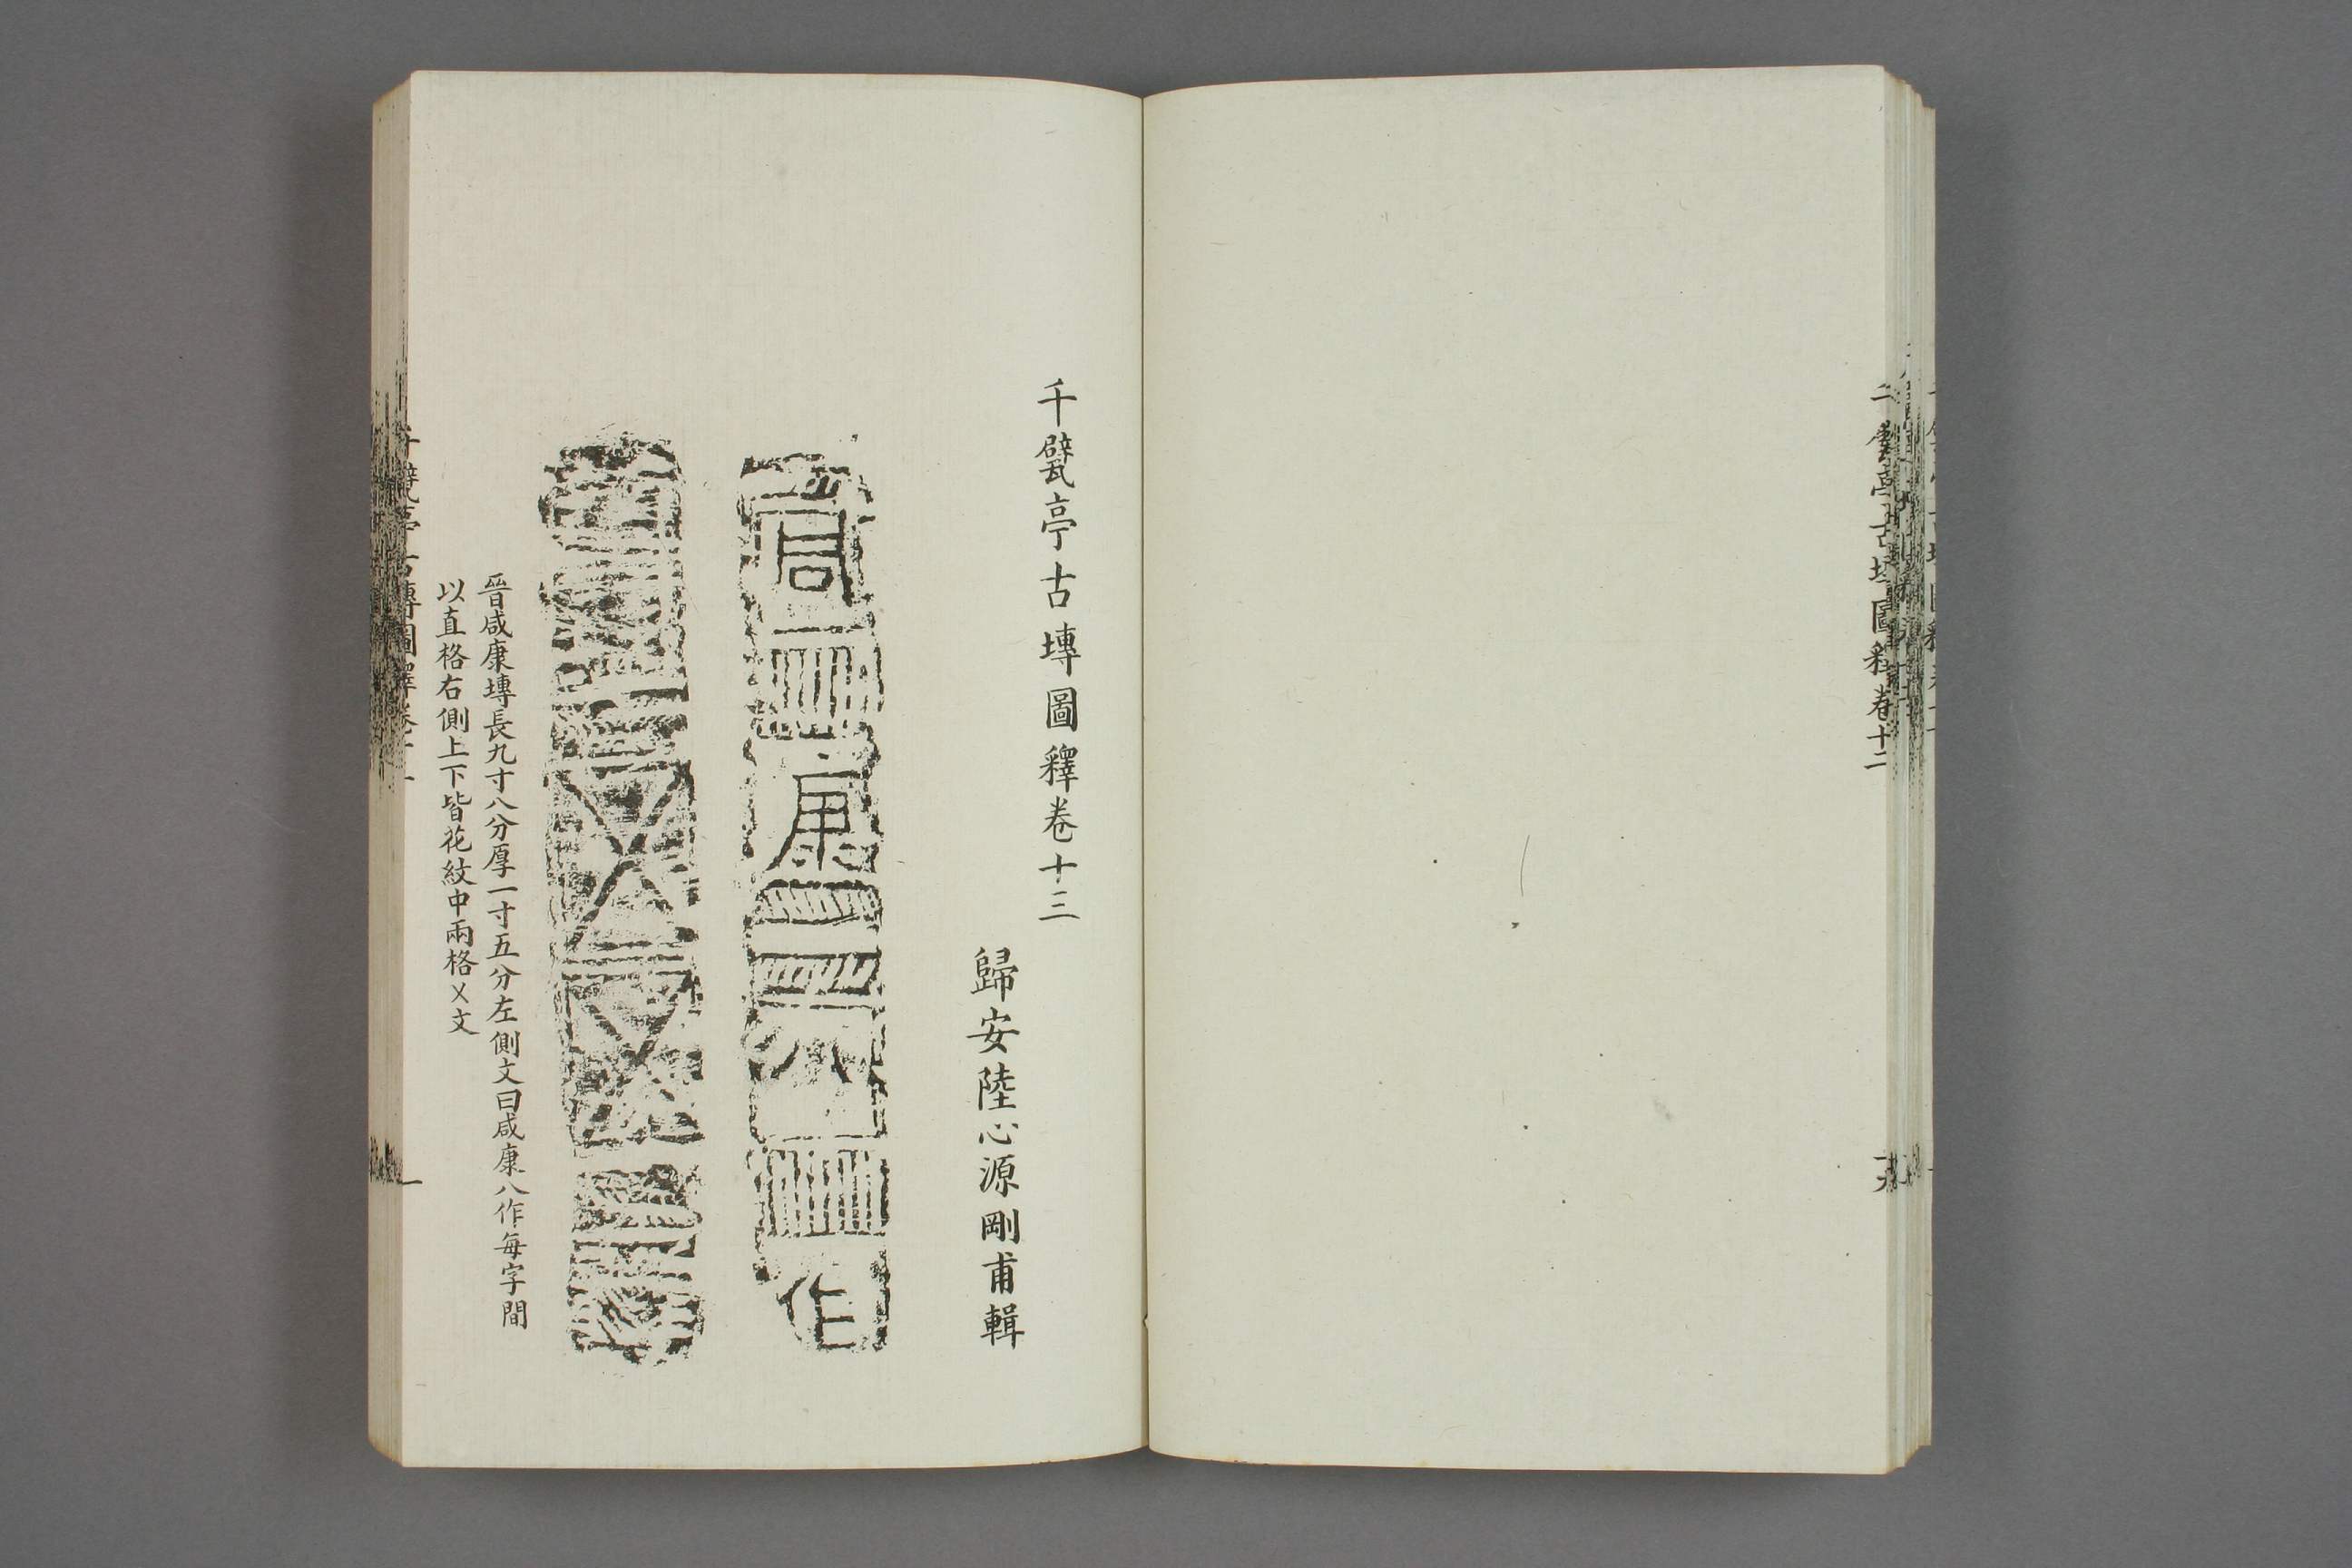 千甓亭古塼圖釋卷十二
千甓亭古塼圖釋卷十三
歸安陸心源剛甫輯
咸康八作
晉咸康塼長九寸八分厚一寸五分左側文曰咸康八作每字間
以直格右側上下皆花紋中兩格乂文
一